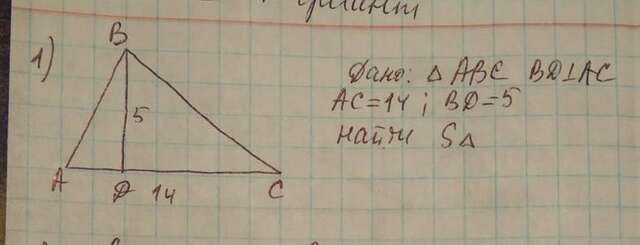 1)
B
5
A D 14 C
Дано: △ ABC BD⊥AC
AC=14 ; BD=5
Найти S△